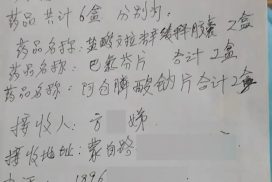 药品共计6盒 分别为:
药品名称: 盐酸文拉法辛缓释胶囊 2盒
药品名称: 巴氯芬片 合计2盒
药品名称: 阿仑膦酸钠片合计2盒
接收人: 方 娣
接收地址: 蒙自路
1896